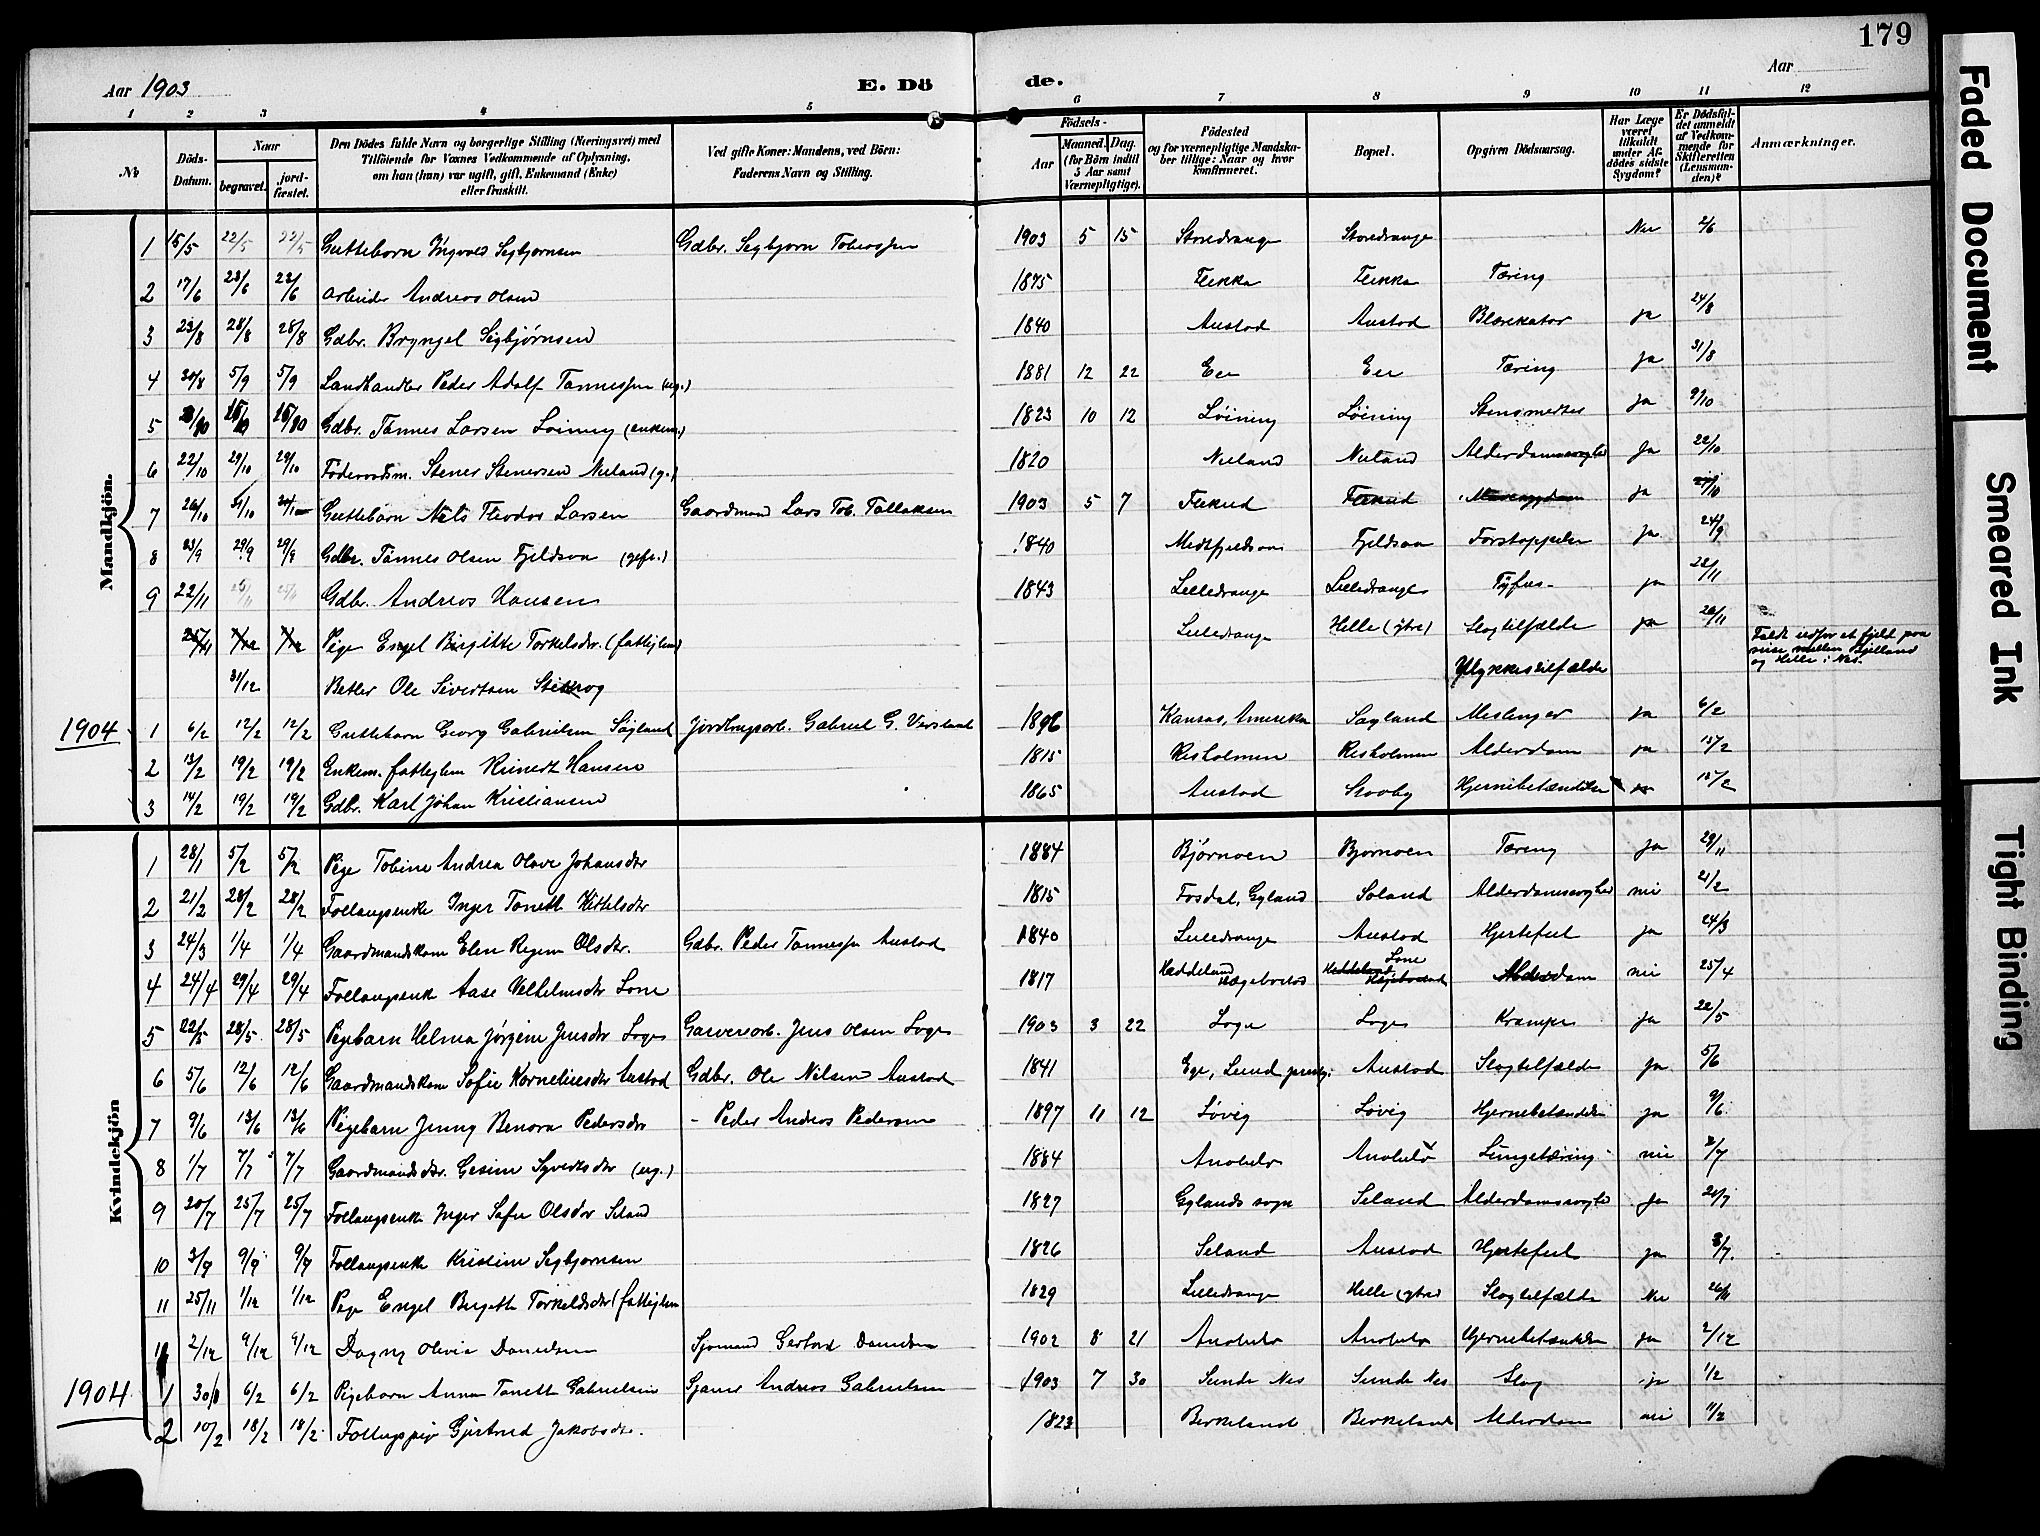 179
Aar 1903
E. Dö de.
Aar
1 2 3 4 5 6 7 8 9 10 11 12
№
Döds-Datum.
Naar
begravet.
jord-fæstet.
Den Dödes fulde Navn og borgerlige Stilling (Næringsvei) med
Tilföiende for Voxnes Vedkommende af Oplysning,
om han (hun) var ugift, gift, Enkemand (Enke)
eller fraskilt.
Ved gifte Koner: Mandens, ved Börn:
Faderens Navn og Stilling.
Födsels-
Aar
Maaned. Dag.
(for Börn indtil
5 Aar samt
Værnepligtige).
Födested
og for værnepligtige Mandska-
ber tillige: Naar og hvor
konfirmeret.
Bopæl.
Opgiven Dödsaarsag.
Har Læge
været
tilkaldt
under Af-
dödes sidste
Sygdom?
Er Dödsfal-
det anmeldt
af Vedkom-
mende for
Skifteretten
(Lensman-
den)?
Anmærkninger.
Mandkjön.
1 15/5 22/5 22/5 Guttebarn Ingvald Sigbjørnsen Gdbr. Sigbjørn Tobiassen 1903 5 15 Storedrange Storedrange Nei 2/6
2 17/6 23/6 23/6 Arbeider Andreas Olsen 1875 Flikka Flikka Tæring
3 23/8 28/8 28/8 Gdbr. Bryngel Sigbjørnsen 1840 Austad Austad Blærekatar ja 24/8
4 30/8 5/9 5/9 Landhandler Peder Adolf Tønnessen (ug.) 1881 12 22 Eie Eie Tæring ja 31/8
5 Gdbr. Tønnes Larsen Løining (enkem.) 1823 10 12 Løining Løining Stensmerter ja 9/10
6 22/10 29/10 29/10 Føderaadsm. Stener Stenersen Nuland (g.) 1820 Nuland Nuland Alderdomssvaghed ja 22/10
7 26/10 31/10 Guttebarn Nils Theodor Larsen Gaardmand Lars Tob. Tollaksen 1903 5 7 Flikeid Flikeid Mavesygdom ja 27/10
8 23/9 29/9 29/9 Gdbr. Tønnes Olsen Fjeldsaa (gift.) 1840 Midtfjeldsaa Fjeldsaa Forstoppelse ja 24/9
9 22/11 Gdbr. Andreas Hansen 1843 Lilledrange Lilledrange Tyfus ja 22/11
25/11 Pige Engel Birgitte Torkelsdtr. (fattiglem) Lilledrange Helle (ytre) Slagtilfælde ja 26/11
31/12 Betler Ole Sivertsen Ulykkestilfælde Faldt udfor et fjeld paa
og Helle i Nes.
1904
1 6/2 12/2 12/2 Guttebarn Georg Gabrielsen Søyland Jordbrugsarb. Gabriel G. 1896 Kansas, Amerika Søyland Meslinger ja 6/2
2 13/2 19/2 19/2 Enkem. fattiglem Reinert Hansen 1815 Risholmen Risholmen Alderdom ja 15/2
3 14/2 19/2 19/2 Gdbr. Karl Johan Kristiansen 1865 Austad Hjernebetændelse 15/2
Kvindekjön
1 28/1 5/2 5/2 Pige Tobine Andrea Olave Johansdtr 1884 Bjørnøen Bjørnøen Tæring ja 29/11
2 21/2 28/2 28/2 Follaugsenke Inger Tonette Kittelsdtr 1815 Fosdal, Gyland Søland Alderdomssvaghed nei 21/2
3 24/3 1/4 1/4 Gaardmandskone Elen Regine Olsdtr. Gdbr. Peder Tønnessen Austad 1840 Lilledrange Austad Hjertefeil ja 24/3
4 24/4 29/4 29/4 Follaugsenke Aase Vilhelmsdtr Lone 1817 Heddeland Hægebostad Lone Alderdom nei 25/4
5 22/5 28/5 28/5 Pigebarn Helma Jørgine Jensdtr Loge Garveriarb. Jens Olsen Loge 1903 3 22 Loge Loge Krampe ja 22/5
6 5/6 12/6 12/6 Gaardmandskone Sofie Korneliusdtr Austad Gdbr. Ole Nilsen Austad 1841 Ege, Lund prestg. Austad Slagtilfælde ja 5/6
7 9/6 13/6 13/6 Pigebarn Jenny Benora Pedersdtr - Peder Andreas Pedersen 1897 11 12 Løvig Løvig Hjernebetændelse ja 9/6
8 1/7 7/7 7/7 Gaardmandsdtr. Gesine Syvertsdtr (ug.) 1884 Anabelø Anabelø Lungetæring nei 2/7
9 20/7 25/7 25/7 Follaugsenke Inger Sofie Olsdtr Seland 1827 Gylands sogn Seland Alderdomssvaghed ja 20/7
10 3/9 9/9 9/9 Follaugsenke Kristine Sigbjørnsen 1826 Seland Austad Hjertefeil ja
11 25/11 1/12 1/12 Pige Engel Birgitte Torkelsdtr (fattiglem 1829 Lilledrange Helle (ytre) Slagtilfælde Nei 26/11
2/12 9/12 9/12 Dagny Olivia Danielsen Sjømand Gerhard Danielsen 1902 8 21 Anabelø Anabelø Hjernebetændelse ja 2/12
1904
1 6/2 6/2 Pigebarn Anna Tonette Gabrielsen Andreas Gabrielsen 1903 7 30 Sunde Nes Sunde Nes Slag ja 1/2
2 10/2 18/2 18/2 Gjertrud Jakobsdtr. 1823 Birkeland Birkeland Alderdom nei 11/2
Faded Document
Smeared Ink
Tight Binding